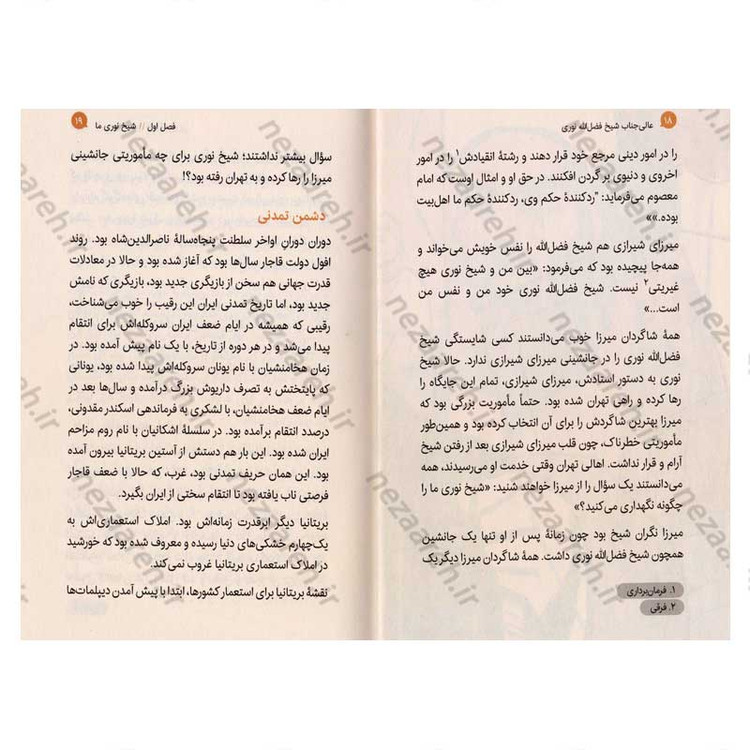 ۱۸ عالی‌جناب شیخ فضل‌الله نوری
را در امور دینی مرجع خود قرار دهند و رشتهٔ انقیادش۱ را در امور
اخروی و دنیوی بر گردن افکنند. در حق او و امثال اوست که امام
معصوم می‌فرماید: "ردکنندهٔ حکم وی، ردکنندهٔ حکم ما اهل‌بیت
بوده.»»
میرزای شیرازی هم شیخ فضل‌الله را نفس خویش می‌خواند و
همه‌جا پیچیده بود که می‌فرمود: «بین من و شیخ نوری هیچ
غیریتی۲ نیست. شیخ فضل‌الله نوری خود من و نفس من
است...»
همهٔ شاگردان میرزا خوب می‌دانستند کسی شایستگی شیخ
فضل‌الله نوری را در جانشینی میرزای شیرازی ندارد. حالا شیخ
نوری به دستور استادش، میرزای شیرازی، تمام این جایگاه را
رها کرده و راهی تهران شده بود. حتماً مأموریت بزرگی بود که
میرزا بهترین شاگردش را برای آن انتخاب کرده بود و همین‌طور
مأموریتی خطرناک، چون قلب میرزای شیرازی بعد از رفتن شیخ
آرام و قرار نداشت. اهالی تهران وقتی خدمت او می‌رسیدند، همه
می‌دانستند یک سؤال را از میرزا خواهند شنید: «شیخ نوری ما را
چگونه نگهداری می‌کنید؟»
میرزا نگران شیخ بود چون زمانهٔ پس از او تنها یک جانشین
همچون شیخ فضل‌الله نوری داشت. همهٔ شاگردان میرزا دیگر یک
۱. فرمان‌برداری
۲. فرقی
فصل اول // شیخ نوری ما ۱۹
سؤال بیشتر نداشتند؛ شیخ نوری برای چه مأموریتی جانشینی
میرزا را رها کرده و به تهران رفته بود؟!
دشمن تمدنی
دوران دورانِ اواخر سلطنت پنجاه‌سالهٔ ناصرالدین‌شاه بود. روند
افول دولت قاجار سال‌ها بود که آغاز شده بود و حالا در معادلات
قدرت جهانی هم سخن از بازیگری جدید بود، بازیگری که نامش
جدید بود، اما تاریخ تمدنی ایران این رقیب را خوب می‌شناخت،
رقیبی که همیشه در ایام ضعف ایران سروکله‌اش برای انتقام
پیدا می‌شد و در هر دوره از تاریخ، با یک نام پیش آمده بود. در
زمان هخامنشیان با نام یونان سروکله‌اش پیدا شده بود، یونانی
که پایتختش به تصرف داریوش بزرگ درآمده و سال‌ها بعد در
ایام ضعف هخامنشیان، با لشکری به فرماندهی اسکندر مقدونی،
درصدد انتقام برآمده بود. در سلسلهٔ اشکانیان با نام روم مزاحم
ایران شده بود. این بار هم دستش از آستین بریتانیا بیرون آمده
بود. این همان حریف تمدنی بود، غرب، که حالا با ضعف قاجار
فرصتی ناب یافته بود تا انتقام سختی از ایران بگیرد.
بریتانیا دیگر ابرقدرت زمانه‌اش بود. املاک استعماری‌اش به
یک‌چهارم خشکی‌های دنیا رسیده و معروف شده بود که خورشید
در املاک استعماری بریتانیا غروب نمی‌کند.
نقشهٔ بریتانیا برای استعمار کشورها، ابتدا با پیش آمدن دیپلمات‌ها
nezaareh.ir